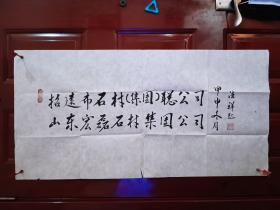 招远市石材(集团)总公司
山东宏磊石材集团公司
甲申冬月